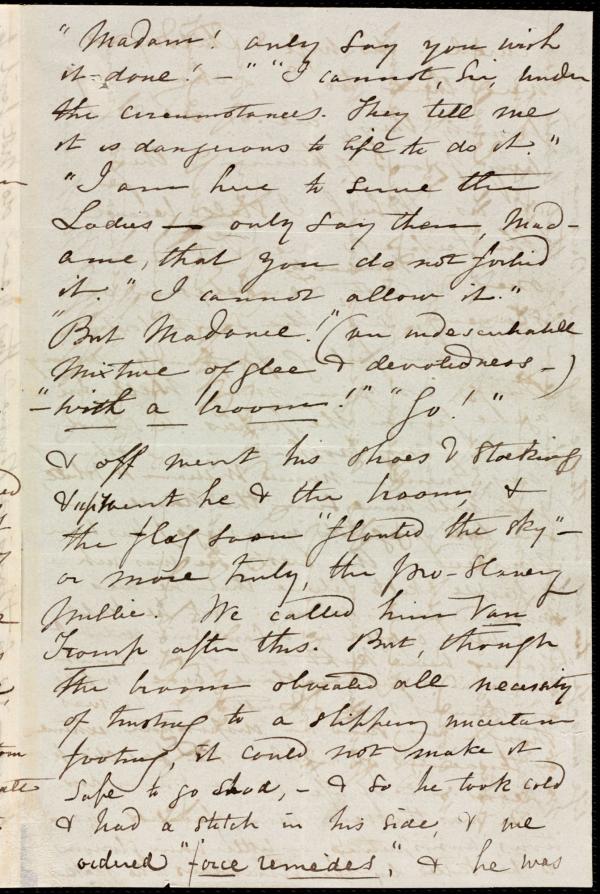 "Madam! only say you wish
it done! – " "I cannot, Sir, under
the circumstances. They tell me
it is dangerous to life to do it."
"I am here to serve the
Ladies — only say then, Mad-
ame, that you do not forbid
it." "I cannot allow it."
"But Madame!" (an indescribable
mixture of glee & devotedness –)
"– with a broom!" "Go!"
& off went his shoes & stockings
& up went he & the broom, &
the flag soon "flouted the sky" –
or more truly, the pro-Slavery
public. We called him Van
Tromp after this. But, though
the broom obviated all necessity
of trusting to a slippery uncertain
footing, it could not make it
safe to go shod, – & so he took cold
& had a stitch in his side, & we
ordered "force remedes", & he was